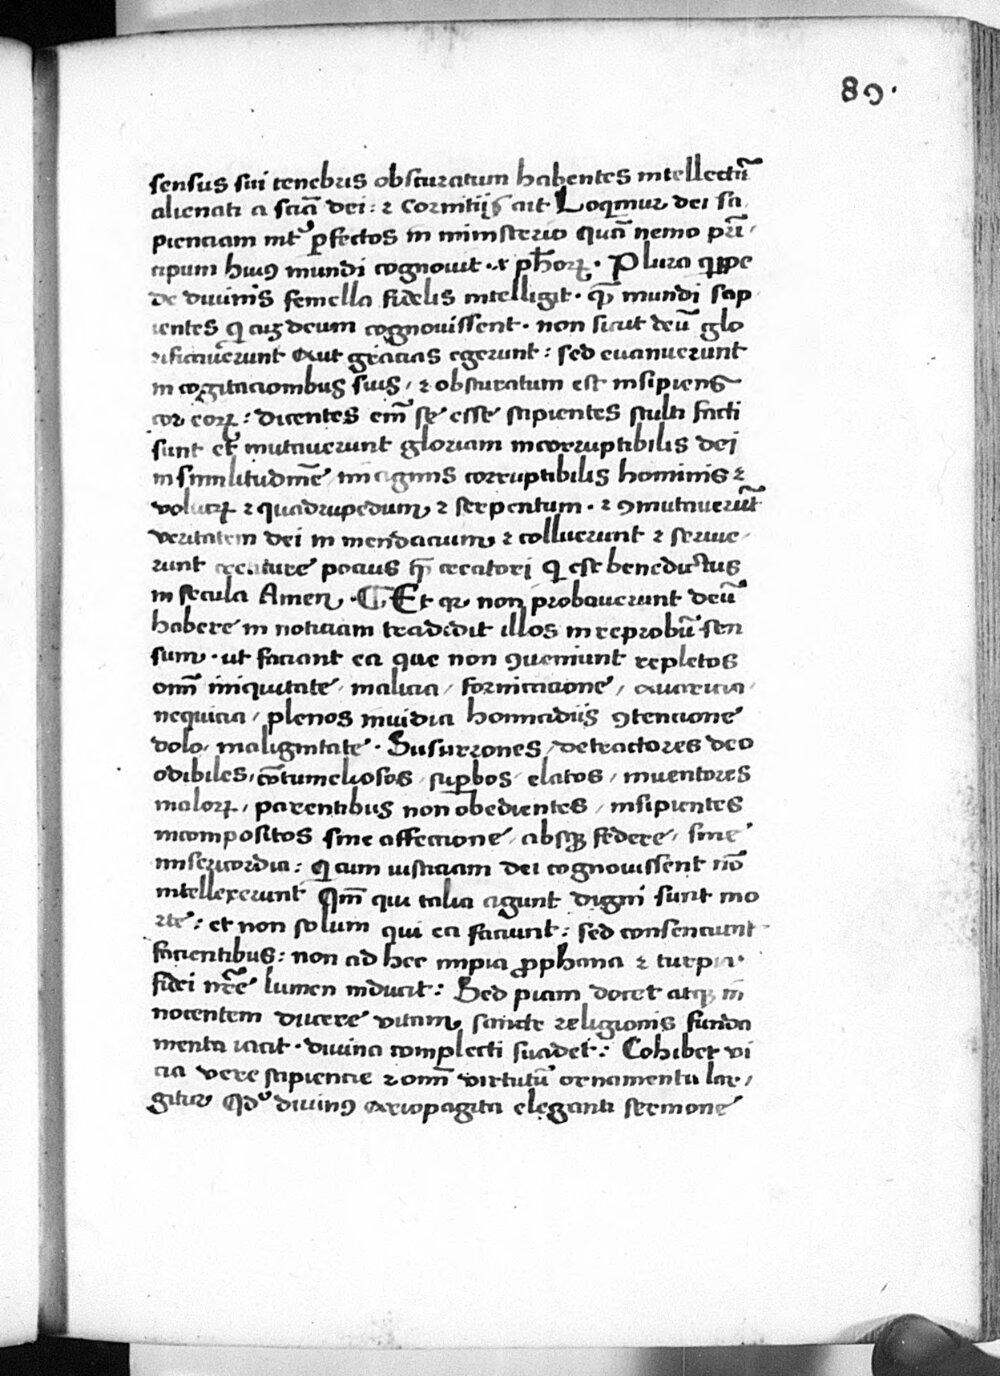 89.
sensus sui tenebris obscuratum habentes intellectū
alienati a sciā dei: ⁊ Corintiis ait Loqimur dei sa
pienciam int̉ ꝑfectos in ministerio quā nemo prī-
cipum huiꝰ mundi cognouit. Plura qippe
de diuinis femella fidelis intelligit. mundi sap
ientes q deum cognouissent. non sicut deū glo
rificauerunt aut gracias egerunt: sed euanuerunt
in cogitacionibus suis / ⁊ obscuratum est insipiens
cor eoꝝ: dicentes em̄ se esse sapientes stulti facti
sunt et mutauerunt gloriam incorruptibilis dei
in similitudinē imaginis corruptibilis hominis ⁊
volucꝝ ⁊ quadrupedum ⁊ serpentum. ⁊ ꝯmutauerūt
veritatem dei in mendacium ⁊ colluerunt ⁊ serue-
runt creature pocius creatori q est benedictus
in secula Amen. Et qꝛ non probauerunt deū
habere in noticiam tradidit illos in reprobū sen
sum. ut faciant ea que non ꝯueniunt repletos
omī iniquitate / malicia / fornicacione / auaricia /
nequicia / plenos inuidia homicidiis ꝯtencione
dolo / malignitate. Susurrones / detractores deo
odibiles / cōtumeliosos / suꝑbos / elatos / inuentores
maloꝝ / parentibus non obedientes / insipientes
incompositos sine affeccione / absqꝫ federe / sine
misericordia: q cum iusticiam dei cognouissent nō
intellexerunt Qm̄ qui talia agunt digni sunt mo
rte: et non solum qui ea faciunt: sed consenciunt
facientibus: non ad hec impia ꝓphana ⁊ turpia.
fidei nr̄e lumen inducit: Sed piam docet atqꝫ in
nocentem ducere vitam sancte religionis funda
menta iacit. diuina complecti suadet: Cohibet vi
cia vere sapiencie ⁊ omī virtutū ornamenta lar-
gitur Qd diuinꝰ ariopagita eleganti sermone